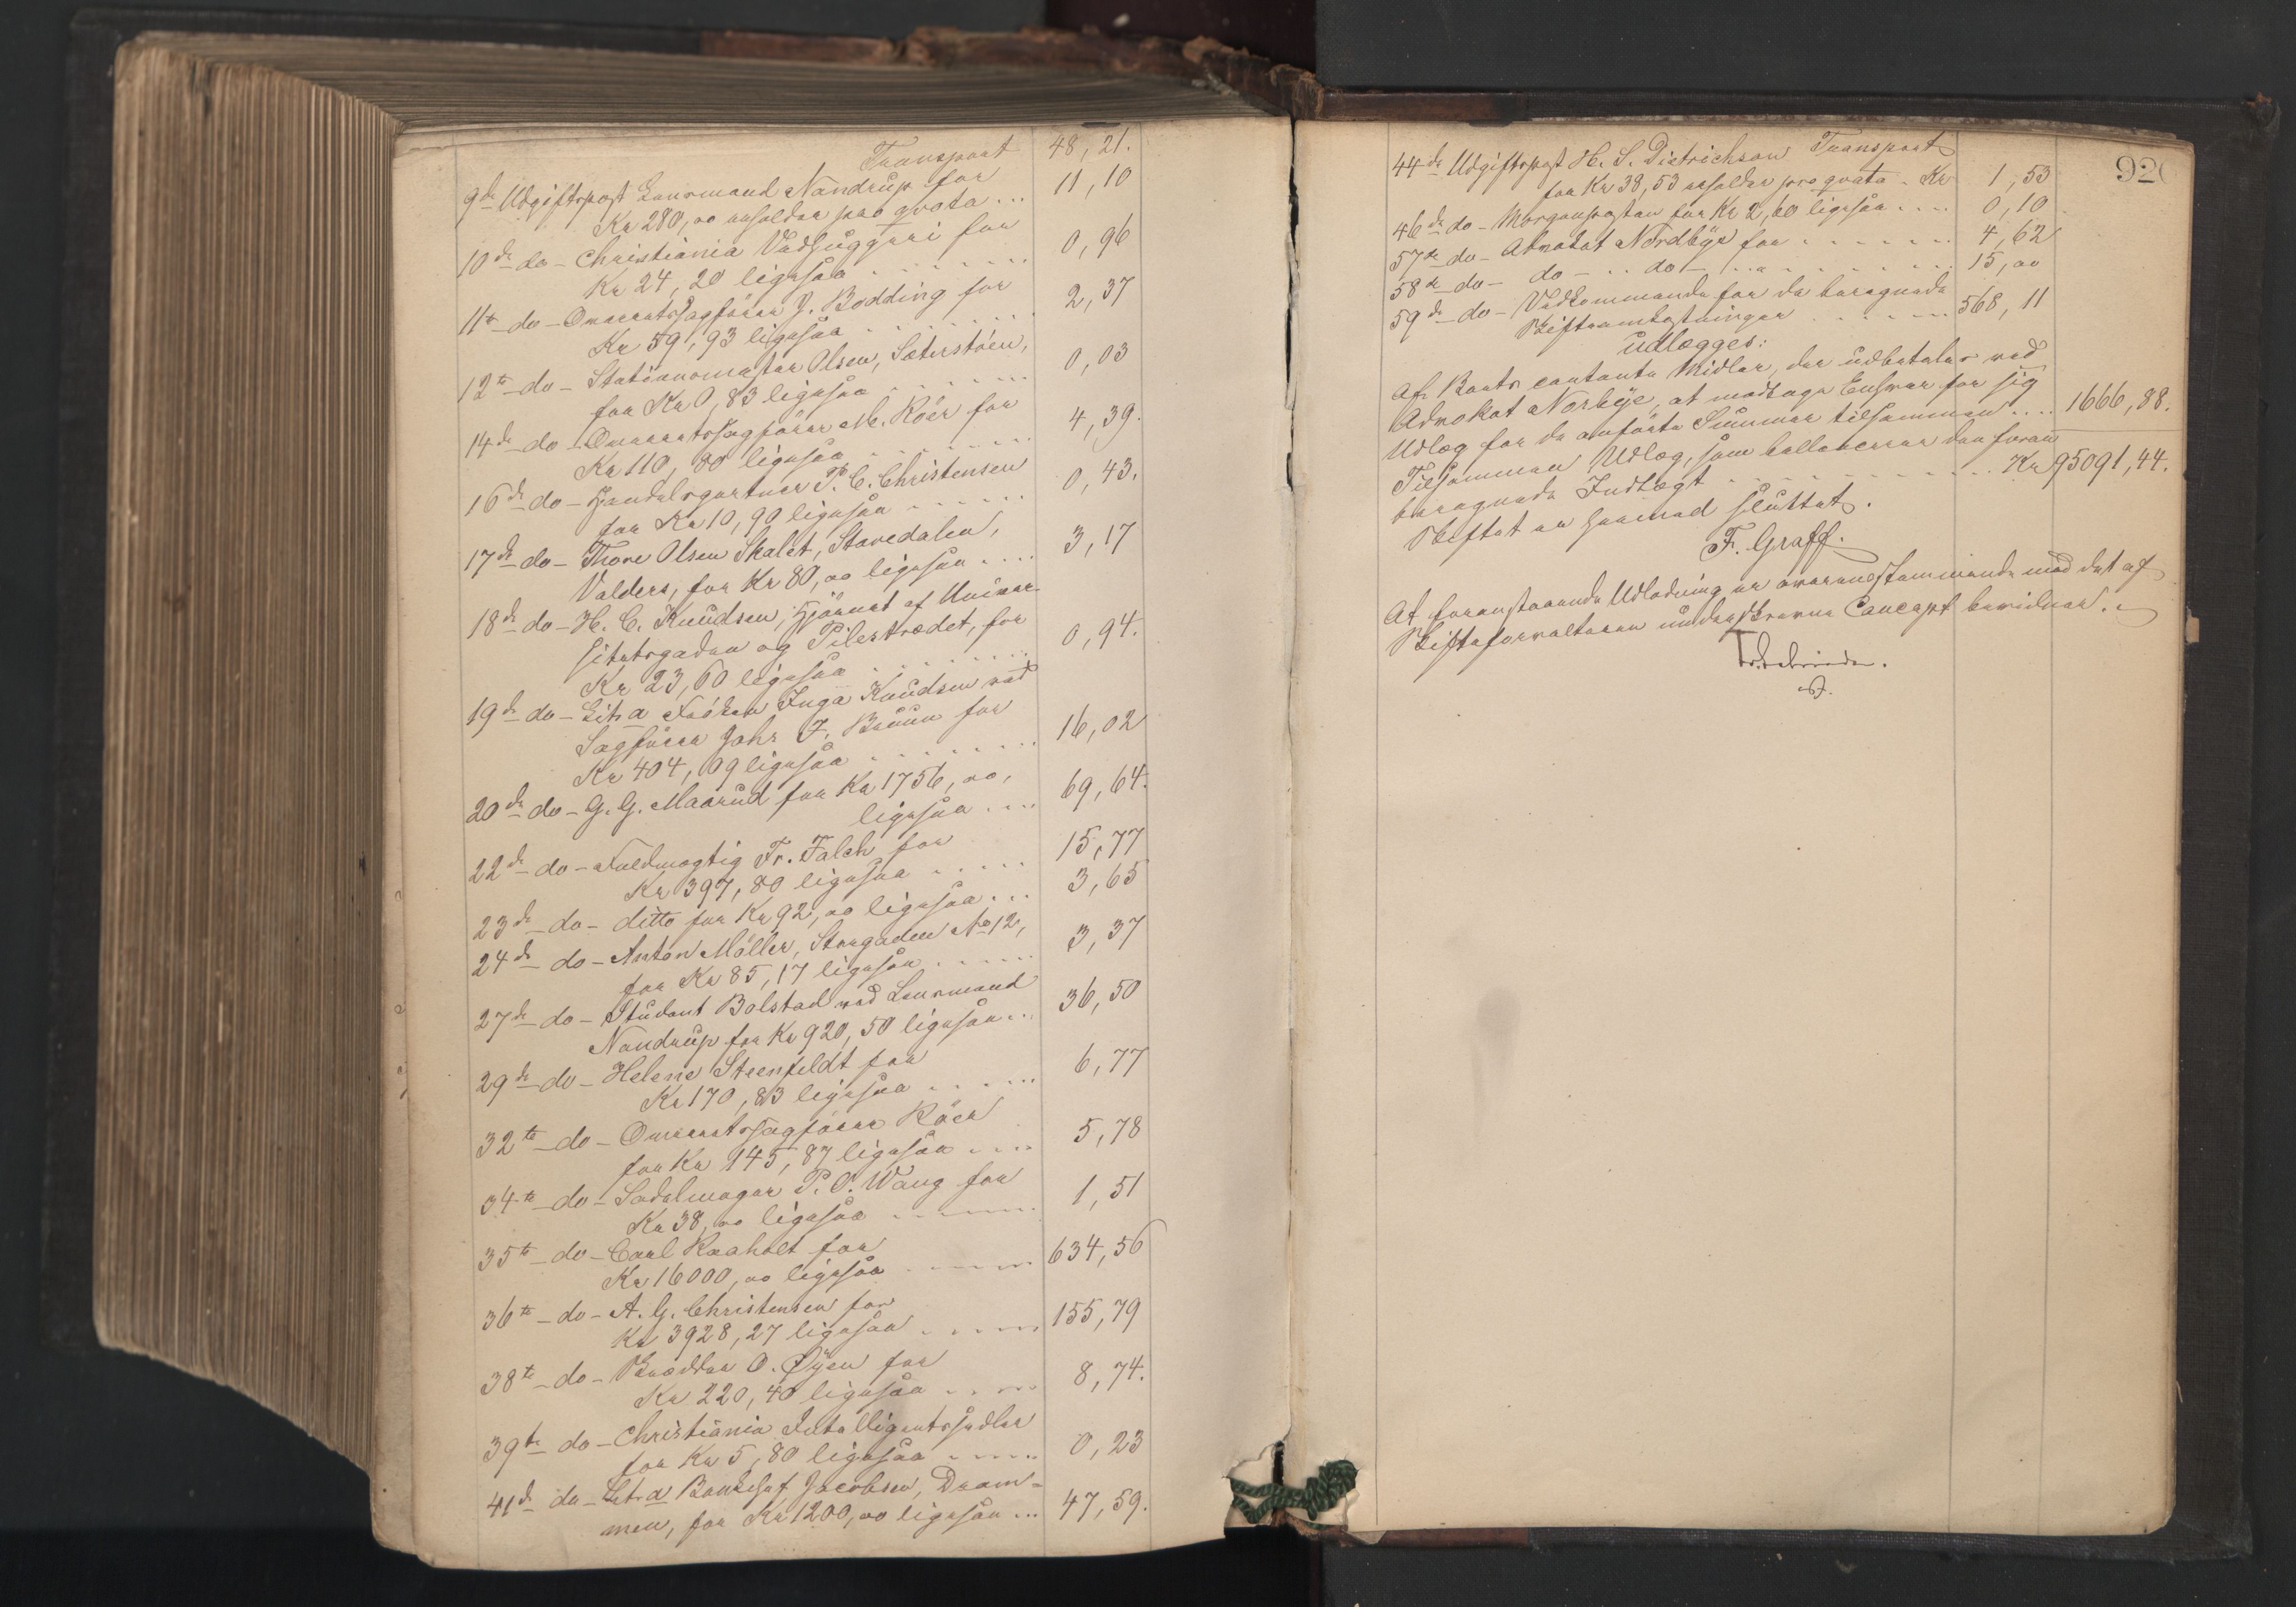 Transport 48,21.
9de Udgiftspost Lensmand Nandrup for
Kr 280,00 erholder pro qvota ... 11,10
10de do - Christiania Vedhuggeri for
Kr 24,20 ligesaa ........ 0,96
11te do - Overretssagfører J. Bodding for
Kr 59,93 ligesaa ........ 2,37
12te do - Stationsmester Olsen, Sæterstøen,
for Kr 0,83 ligesaa ....... 0,03
14de do - Overretssagfører M. Röer for
Kr 110,80 ligesaa ...... 4,39.
16de do - Handelsgartner P. C. Christensen
for Kr 10,90 ligesaa ...... 0,43.
17de do - Thore Olsen Skalet, Stavedalen,
Valders, for Kr 80,00 ligesaa .... 3,17
18de do - H. C. Knudsen, Hjørnet af Univer-
sitetsgaden og Pilestrædet, for
Kr 23,60 ligesaa ........ 0,94.
19de do - Litr a Frøken Inga Knudsen ved
Sagfører Johs J. Bruun for
Kr 404,09 ligesaa ........ 16,02
20de do - G. G. Maarud for Kr 1756,00,
ligesaa .... 69,64.
22de do - Fuldmægtig Fr. Falch for
Kr 397,80 ligesaa ..... 15,77
23de do - ditto for Kr 92,00 ligesaa ... 3,65
24de do - Anton Möller, Storgaden No 12,
for Kr 85,17 ligesaa ...... 3,37
27de do - Student Bolstad ved Lensmand
Nandrup for Kr 920,50 ligesaa ... 36,50
29de do - Helene Steenfeldt for
Kr 170,83 ligesaa ...... 6,77
32te do - Overretssagfører Röer
for Kr 145,87 ligesaa .... 5,78
34te do - Sadelmager P. O. Wang for
Kr 38,00 ligesaa ...... 1,51
35te do - Carl Raaholt for
Kr 16000,00 ligesaa ...... 634,56
36te do - A. G. Christensen for
Kr 3928,27 ligesaa ..... 155,79
38te do - O. Øyen for
Kr 220,40 ligesaa .... 8,74.
39te do - Christiania Intelligentssedler
for Kr 5,80 ligesaa ..... 0,23
41de do - Litr a Bankchef Jacobsen, Dram-
men, for Kr 1200,00 ligesaa ... 47,59.
920
Transport
44de Udgiftspost H. S. Dietrichson
for Kr 38,53 erholder pro qvota - Kr 1,53
46de do - Morgenposten for Kr 2,60 ligesaa .... 0,10
57de do - Advokat Nordbye for ...... 4,62
58de do - do - .. do - ........ 15,00
59de do - Vedkommende for de beregnede
Skifteomkostninger ....... 568,11
udlægges:
Af Boets contante Midler, der udbetales ved
Advokat Norbye, at modtage Enhver for sig
Udlæg for de anførte Summer tilsammen .... 1666,88.
Tilsammen Udlæg, som ballancerer den foran
beregnede Indtægt ........... Kr 95091,44.
Skiftet er hermed sluttet.
F. Graff.
At foranstaaende Udlodning er overensstemmende med det af
Skifteforvalteren underskrevne Concept bevidner.